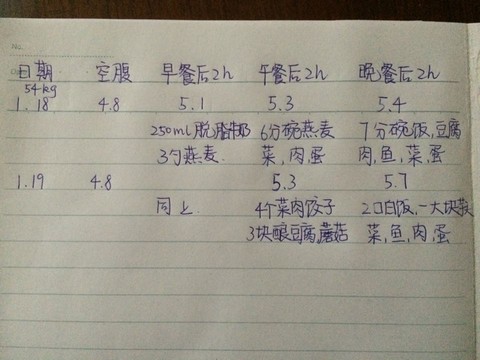 日期 空腹 早餐后2h 午餐后2h 晚餐后2h
54kg
1.18 4.8 5.1 5.3 5.4
250ml脱脂牛奶 6分碗燕麦 7分碗饭,豆腐
3勺燕麦. 菜,肉,蛋 肉,鱼,菜,蛋
1.19 4.8 5.3 5.7
同上. 4个菜肉饺子 2口白饭,一大块
3块酿豆腐,蘑菇 菜,鱼,肉,蛋